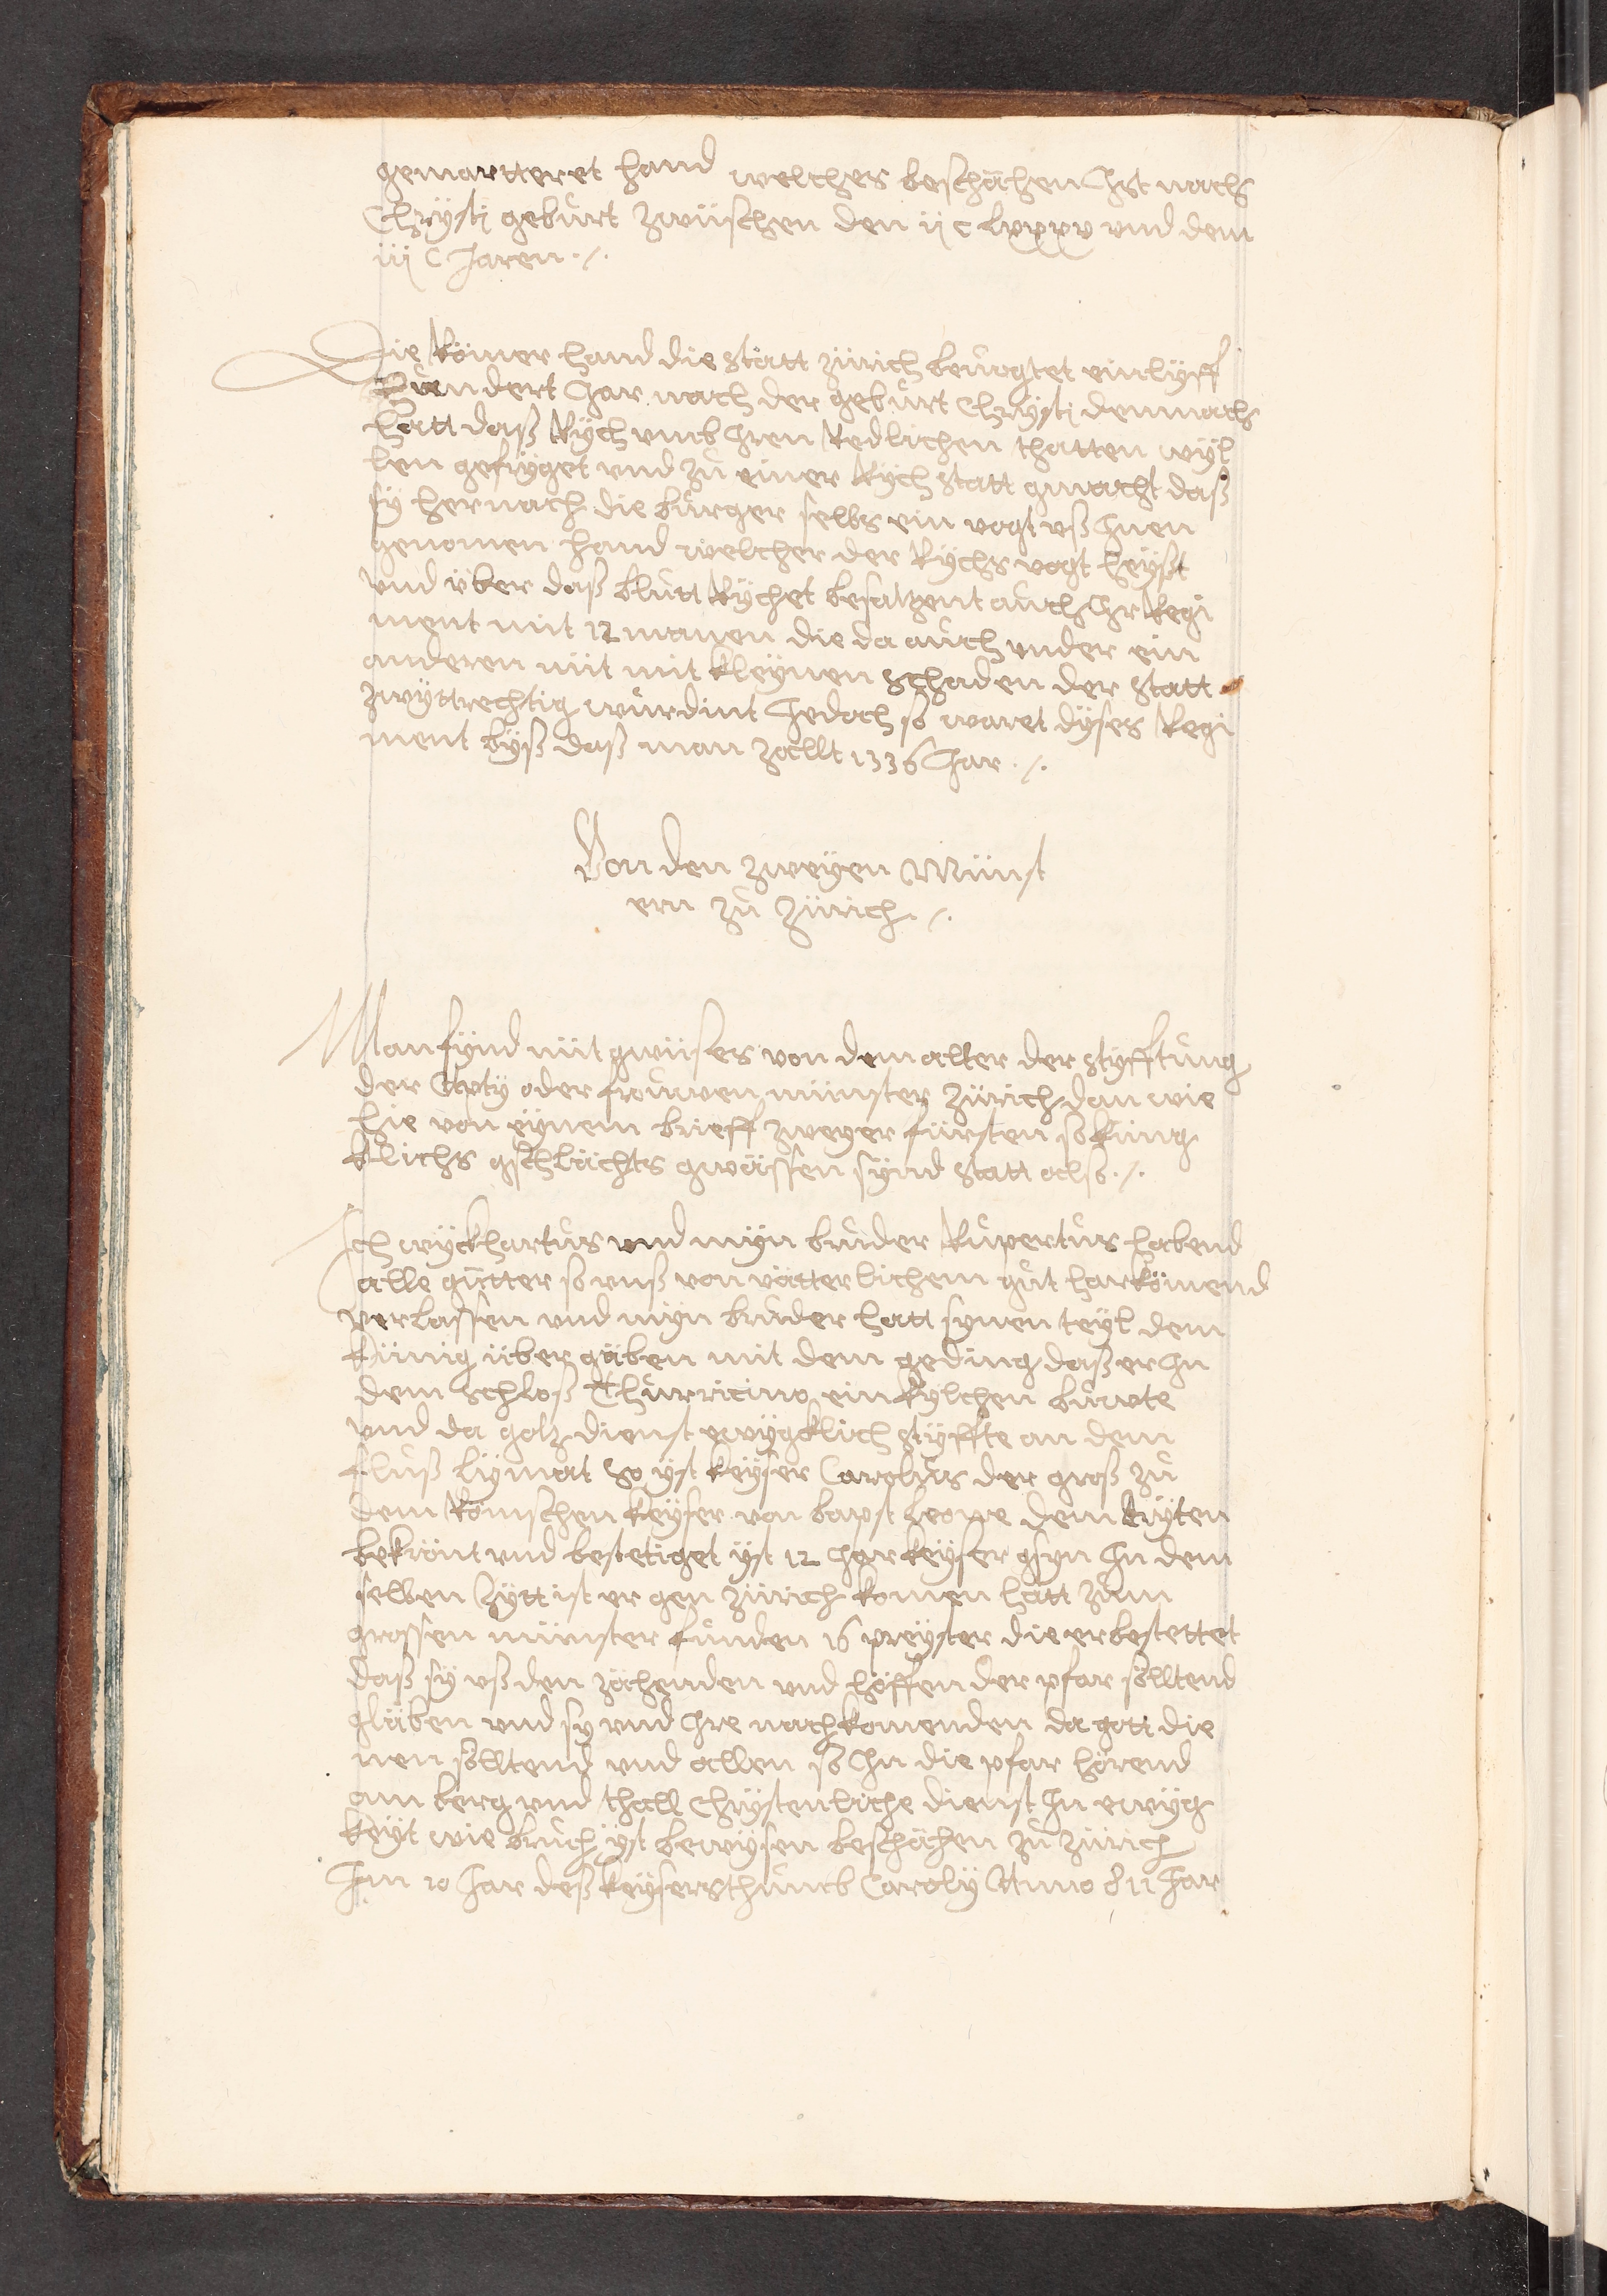 gemartteret hand welches beschächen Ist nach
Chrÿstj gebůrt zwüschen den ijc lxxxv vnd dem
iiij C Jaren ./.
Die Römer hand die statt zürich beuogtet einlÿff
Hundert Jar nach der gebůrt Chrÿstj demnach
hatt daß Rÿch vmb Jren Redlichen thatten wÿl
len gefrÿget vnd zů einer Rÿch statt gmacht daß
sÿ hernach die bůrger selbs ein vogt vß Jnen
genomen hand welcher der Rÿchs vogt heÿßt
vnd über daß blůtt Rÿchet besatzent aůch Jr Regi
ment mit 12 manen die da aůch vnder ein
anderen nüt mit kleÿnen schaden der statt
zwÿttrechtig wůrdint Jedoch so waret dÿses Regi
ment bÿß daß man zallt 1336 Jar ./.
Von den zweÿen Münst
ern zů zürich ./.
Man fÿnd nüt gwüses von dem alter der stÿfftůng
der Apty oder froůwen münster zürich dan wie
hie von eÿnem brieff zweyer fürsten so küng
klichs gschlächts gwässen sÿnd statt also ./.
Ich wÿckhartůs vnd mÿn brůder Růpertůs habend
alle gůtter so vnß von vätterlichem gůt harkömend
verlassen vnd mÿn brůder hatt sÿnen teÿl dem
künig über gäben mit dem geding daß er Jn
dem schloß Thůrricino ein kÿlchen buwte
vnd da gotz dienst ewÿgklich stÿffte an dem
flůß lÿmat so ÿst keÿser Carolůs der groß zů
dem Römschen keÿser von bapst leone dem drÿten
bekrönt vnd bestetiget ÿst 12 Jar keÿser gsÿn Jn dem
selben Zÿtt ist er gen zürich komen hatt zům
grossen münster fůnden 16 preÿster die er bestettet
daß sÿ vß den zächenden vnd höffen der pfar sölltend
gläben vnd sy vnd Jre nachkomenden da gott die
nen sölltend vnd allen so Jn die pfar hörend
am berg vnd thall Chrÿstenliche dienst Jn ewÿg
keÿt wie brůch ÿst bewÿsen beschächen zů zürich
Im 10 Jar deß keÿserthůmb Carolÿ Anno 811 Jar